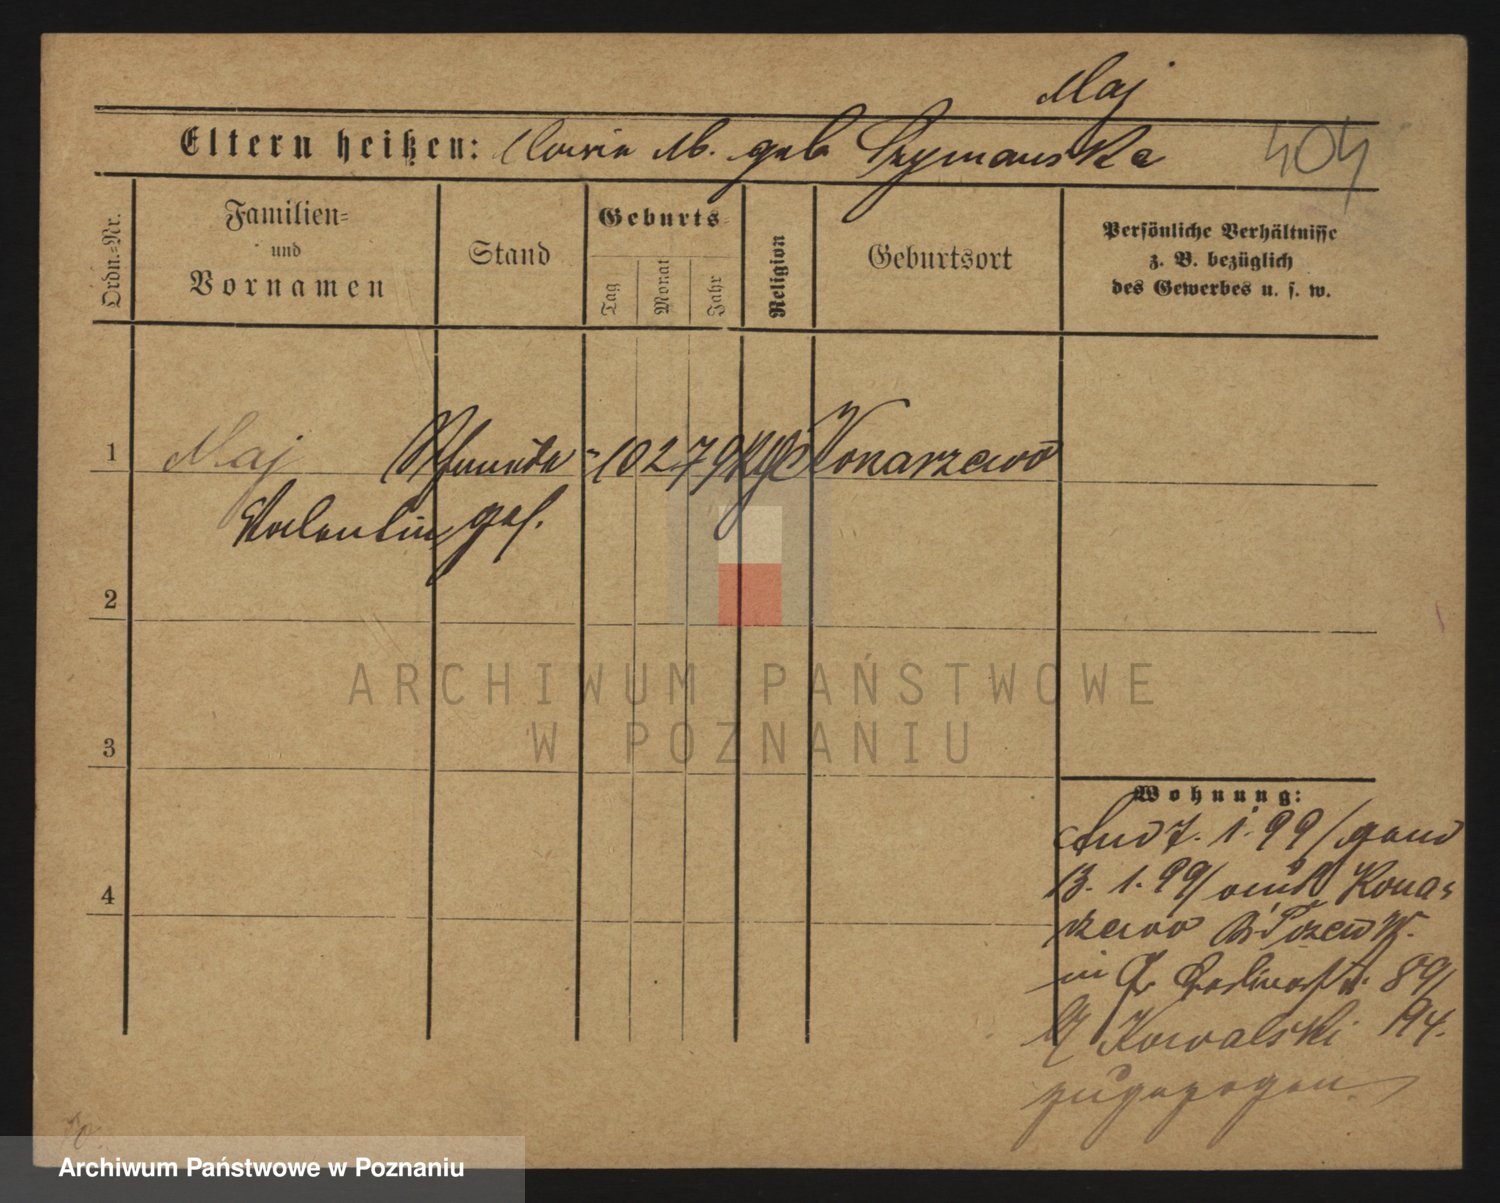 Maj
Eltern heißen: Maria M. geb Szymanska
404
Ordn.-Nr.
Familien-
und
Vornamen
Stand
Geburts-
Tag
Monat
Jahr
Religion
Geburtsort
Persönliche Verhältnisse
z. B. bezüglich
des Gewerbes u. s. w.
1 Maj 10 2 79 Konarzewo
Valentin ges.
2
3
4
ARCHIWUM PAŃSTWOWE
W POZNANIU
Wohnung:
7. 1. 99/
13. 1. 99/ Konar
zewo
in 89/
Kowalski 94.
zugezogen
Archiwum Państwowe w Poznaniu